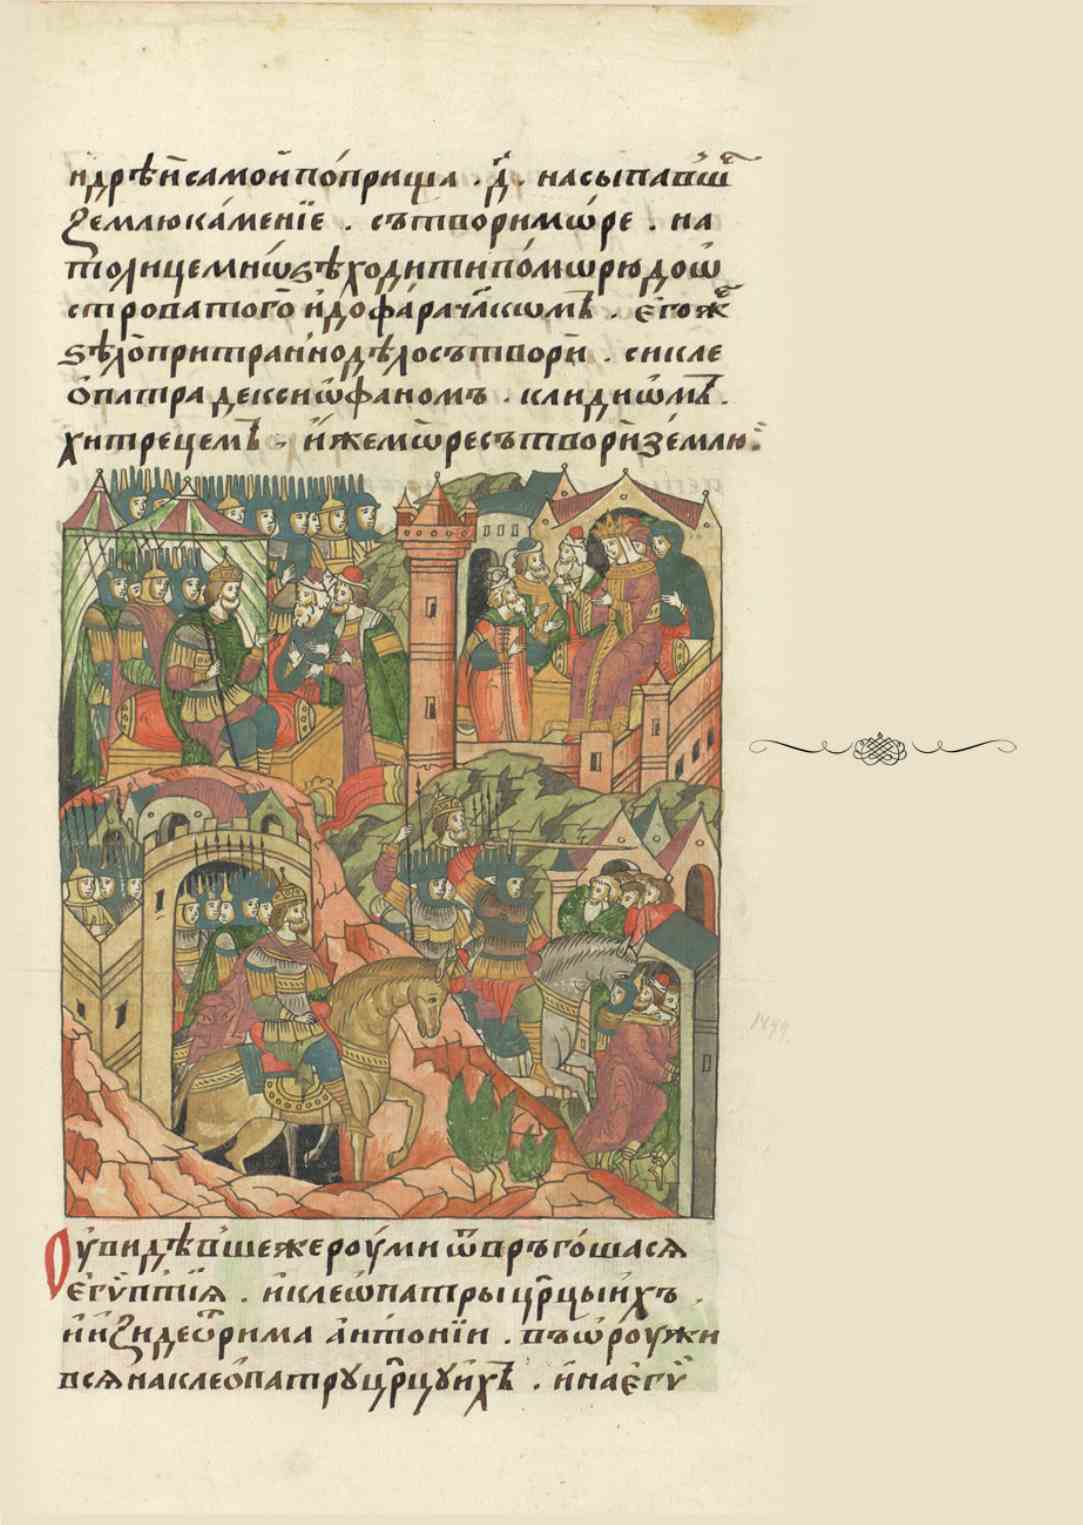 ндрѣй самой по́прища . д҃ . насыпавш҃
землю ка́менїе . сътвори мѡ́ре . на
толицемнѡ ѕѣ ходити по́ мѡрю доѡ
строватого̄ и до фа́рача́сѡмъ . єгоже
ѕѣло̀ притраннодѣло сътвори . си кле
ѻ́патра дексиѡ́фаномъ . клидиѡ́мъ .
хитрецемъ . и́же мѡ́ре сътвори зе́млю .
Оувидѣвше же роу́ми ѿвръго́шася
єгѵ́птїя . и клеѡпатры цр҃цы и́хъ .
и и҆зыде ѿ рима а́нтонїи . въѡроужи
вся на клеѻ́патру цр҃цу и́хъ . и на єгѵ́
1499